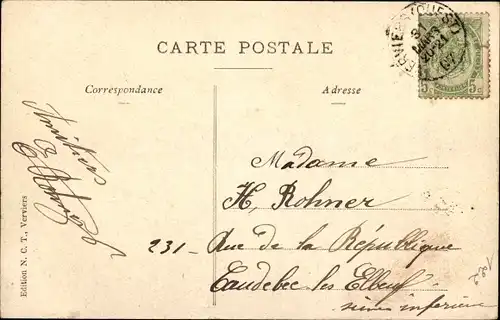 CARTE POSTALE
Correspondance
Adresse
Amitiés
Madame
H. Rohner
231 - Rue de la République
Caudebec les Elbeuf
seine inférieure
Edition N. C. T., Verviers
5c 5c